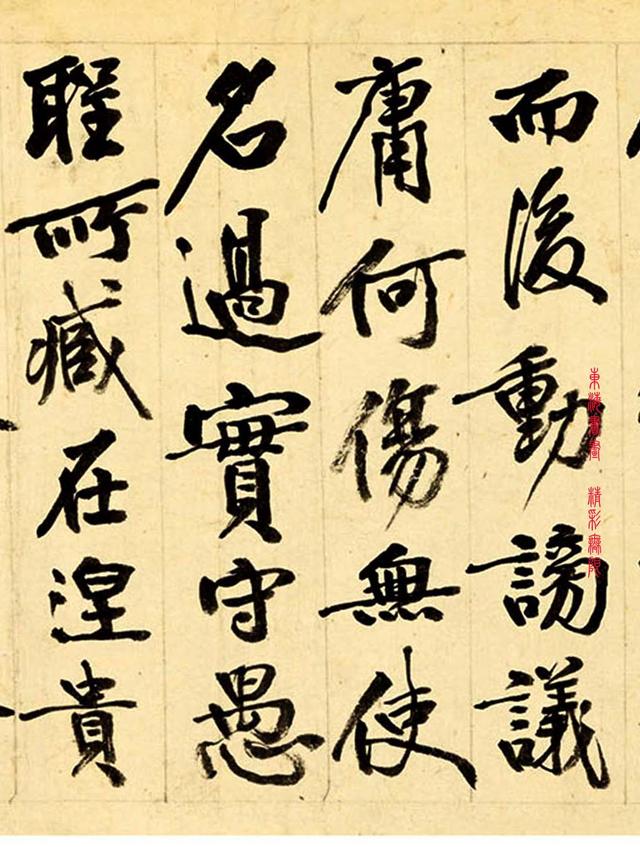 而後動謗議
庸何傷無使
名過實守愚
聖所臧在涅貴
東海書畫 精彩無限